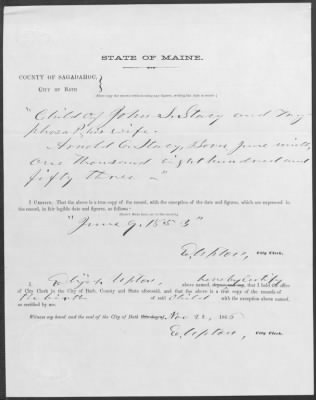 STATE OF MAINE.
COUNTY OF SAGADAHOC,
CITY OF BATH
"Child of John S. Stacy and
phosa P. his wife.
Arnold C. Stacy, Born June ninth,
one thousand eight hundred and
fifty three — "
I CERTIFY, That the above is a true copy of the record, with the exception of the date and figures, which are expressed in
the record, in fair legible date and figures, as follows:
"June 9. 1853"
E. Upton, City Clerk.
I, Elijah Upton, hereby certify
above named, that I hold the office
of City Clerk in the City of Bath, County and State aforesaid, and that the above is a true copy of the records of
the birth of said Child with the exception above named.
as certified by me.
Witness my hand and the seal of the City of Bath Nov 22, 186
E. Upton, City Clerk.